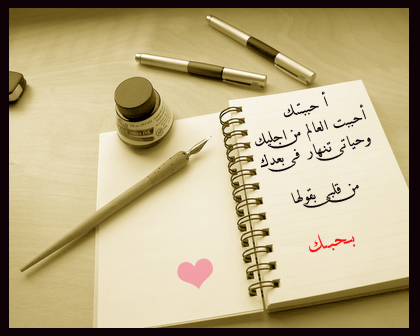 أحببتك
أحببت العالم من اجلك
وحياتي تنهار في بعدك
من قلبي بقولها
بحبك